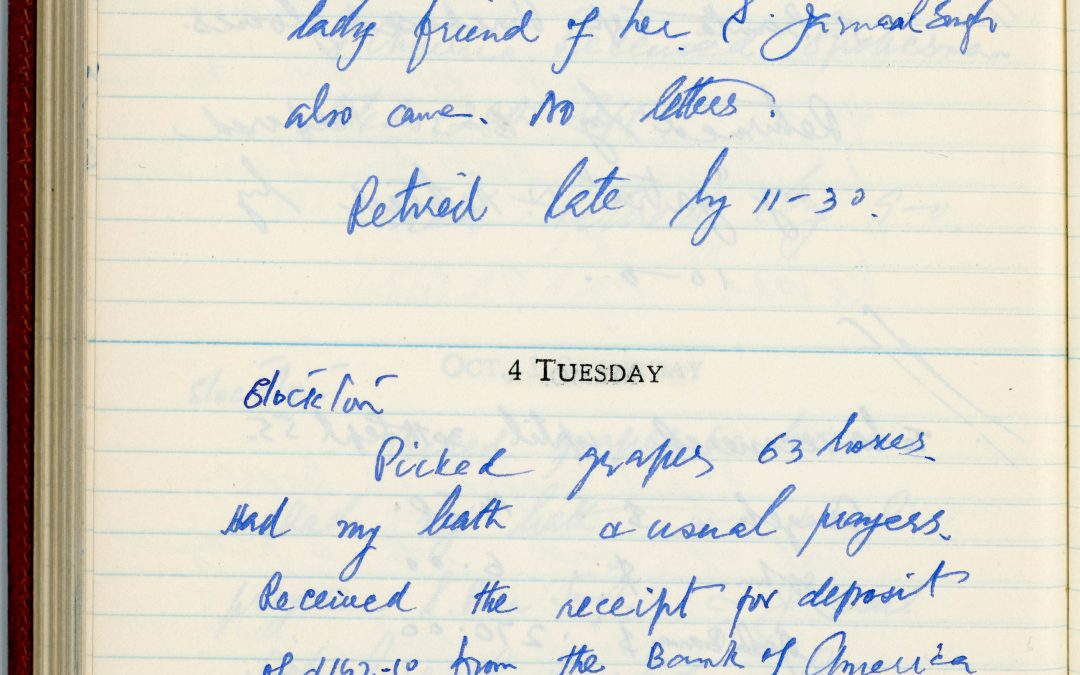 lady friend of her. S. Jarnaal Singh
also came. No letters.
Retired late by 11-30.
4 TUESDAY
Stockton
Picked grapes 63 boxes.
Had my bath & usual prayers.
Received the receipt for deposit
of from the Bank of America